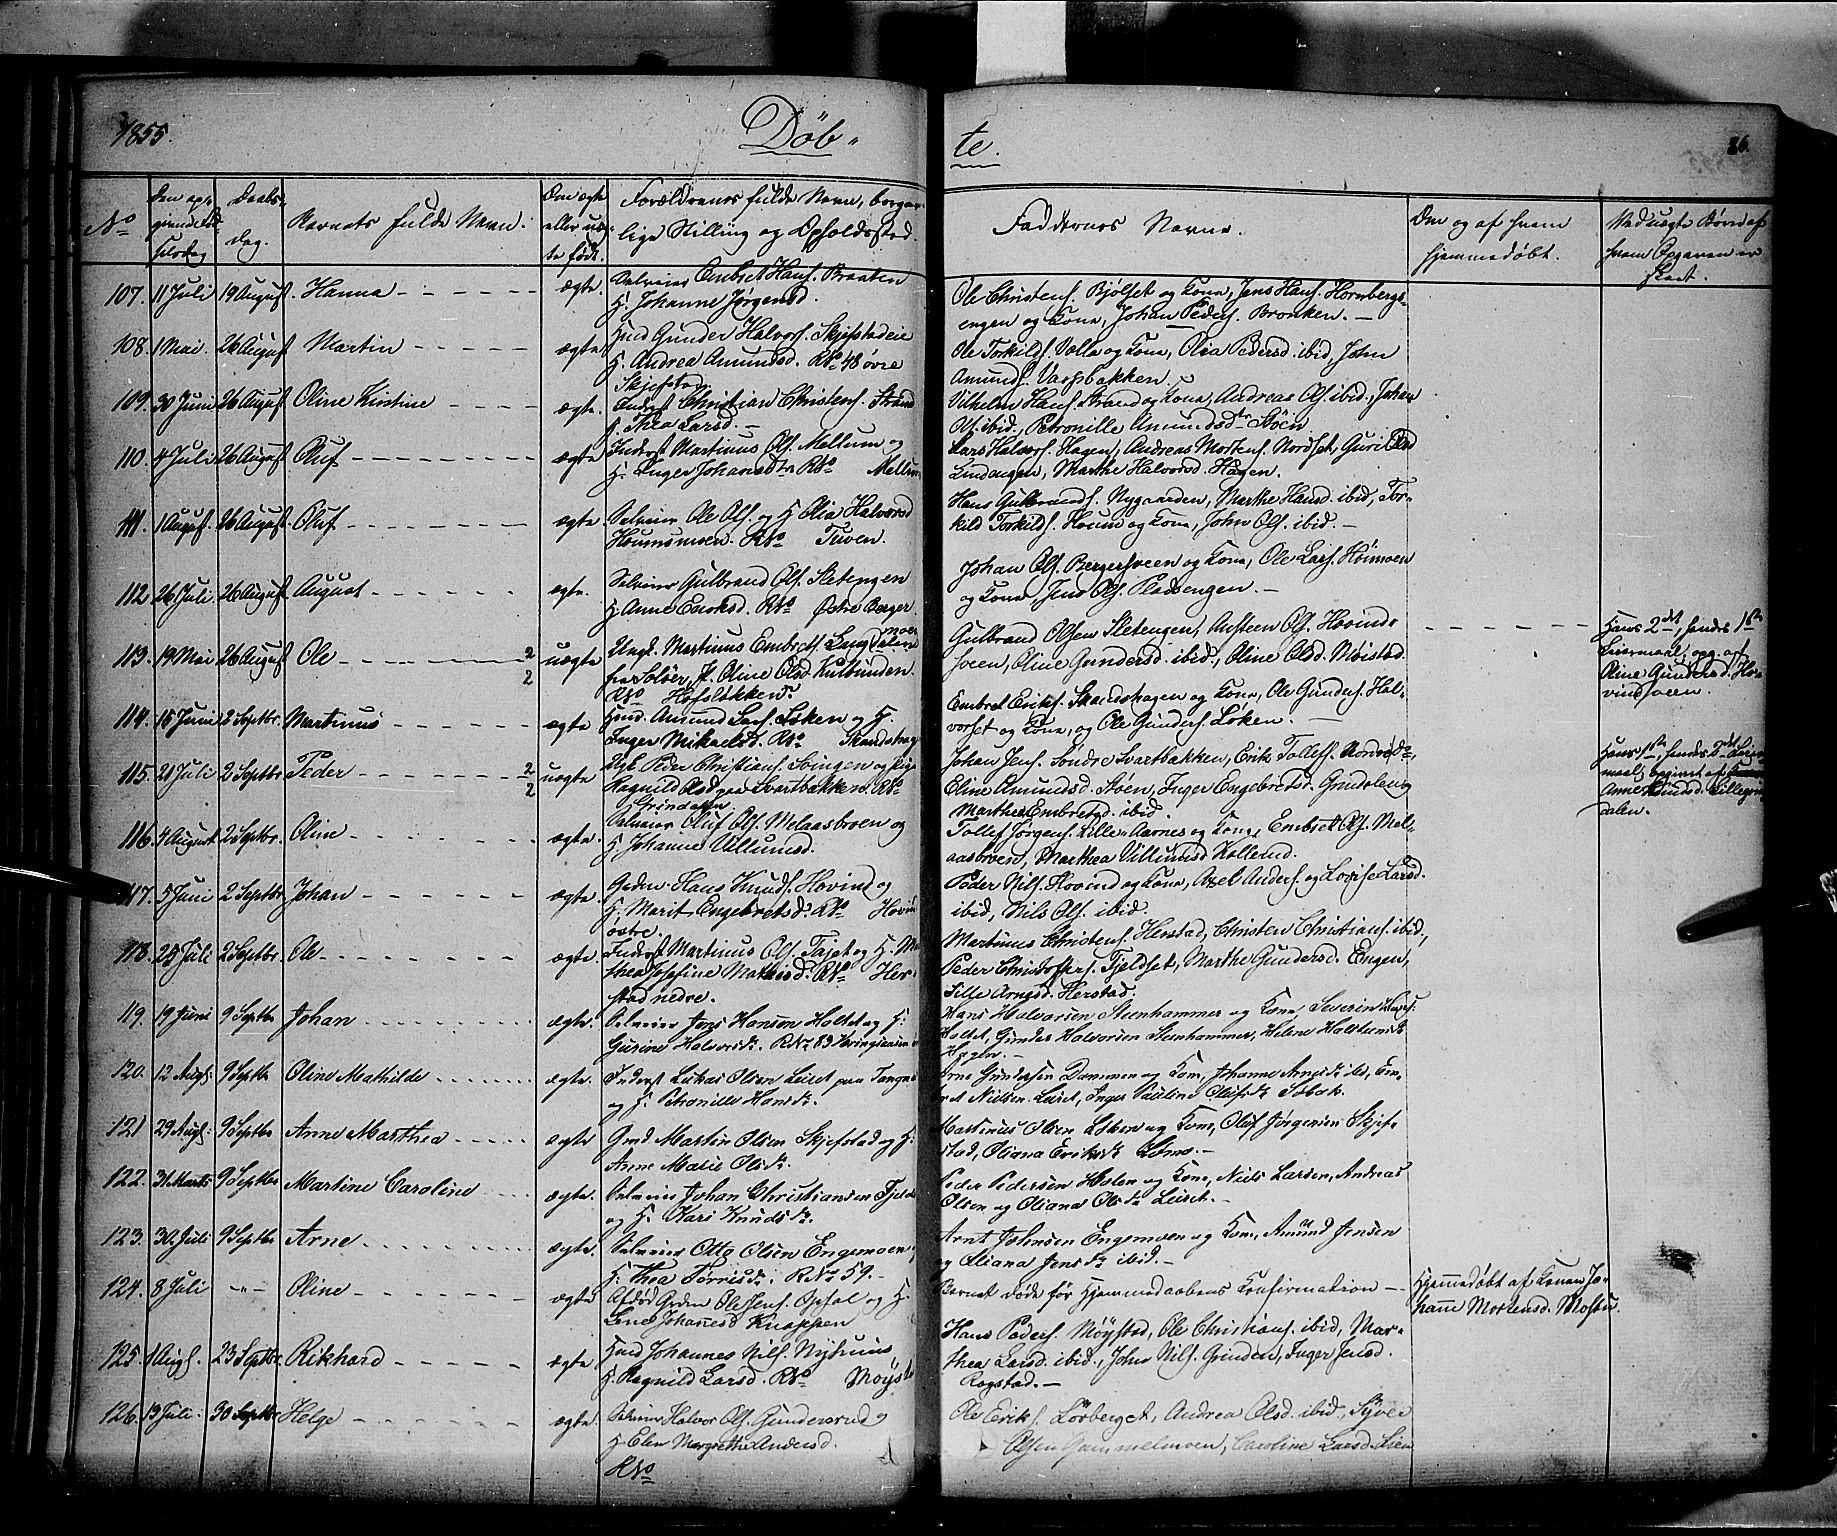 1855.
Döb-
te.
86.
No
Den opgivne Fødselsdag
Daabsdag.
Barnets fulde Navn.
Om ægte eller uægte født.
Forældrenes fulde Navn, borgerlige Stilling og Opholdssted.
Faddernes Navne.
Om og af hvem hjemmedøbt.
Ved uægte Børn af hvem Opgaven er skeet.
107. 11 Juli 19 August Hanna ægte. Selveier Embret Hans. Braaten
H. Johanne Jørgensd.
Ole Christens. Bjölset og Kone, Jens Hans. Hornbergs-
engen og Kone, Johan Peders. Bronken. —
108. 1 Mai. 26 August Martin ægte Husm. Gunder Halvors. Skjefstadeie
H. Andrea Amundsd. RNo 48 övre
Skjefstad.
Ole Torkilds. Volla og Kone, Olia Pedersd. ibid, John
Amunds. Varpsbakken.
109. 30 Juni 26 August Oline Kirstine ægte. Inderst Christian Christens. Strand
H. Thea Larsd. —
Vilhelm Hans. Strand og Kone, Andreas Ols. ibid. Johan
Ols. ibid., Petronille Amundsdtr Stöen
110. 4 Juli 26 August Oluf ægte Inderst Martinus Ols. Mellum og
H. Inger Johansdtr RNo Mellum
Lars Halvors. Hagen, Andreas Mortens. Nordset, Guri
Lindengen, Marthe Halvorsd. Hagen.
111. 1 August. 26 August. Oluf ægte Selveier Ole Ols. og H. Olia Halvorsd
Houmsmoen. RNo Tuven.
Hans Gulbrands. Nygaarden, Marthe Hansd. ibid, Tor-
kild Torkilds. Houm og Kone, John Ols. ibid. —
112. 26 Juli. 26 August. August ægte. Selveier Gulbrand Ols. Sletengen
H. Anne Enoksd. RNo Østre Berger
Johan Ols. Bergersveen og Kone, Ole Lars. Höimoen
og Kone, Jens Ols. Pladsengen. —
113. 19 Mai 26 August Ole 2/2 uægte Ungk. Martinus Embrets.
fra Solöer, P. Oline Olsd.
RNo Hofsløkken.
Gulbrand Olsen Sletengen, Austeen Ols. Hovind-
sveen, Oline Gundersd. ibid., Oline Olsd. Möistad.
Hans 2det, hendes 1ste
Leiermaal, opg. af
Oline Gundersd. Ho-
vindsveen.
114. 15 Juni 2 Septbr. Martinus ægte Husm. Amund Lars. Löken og H.
Inger Mikaelsd. RNo
Embret Eriks. Skandshagen og Kone, Ole Gunders. Hal-
vorset og Kone, og Ole Gunders. Löken. —
115. 21 Juli 2 Septbr Peder 2/2 uægte Ungk. Peder Christians. Svingen og Pige
Ragnild Olsd. paa Svartbakken. RNo
Grindalen.
Johan Jens. Söndre Svartbakken, Erik Tollefs. Nordre do,
Eline Amundsd. Stöen, Inger Engebretsd. Grindalen og
Marthea Embretsd. ibid.
Hans 1ste, hendes 2det Leier-
maal; opgivet af
Anne Lillegrin-
dalen.
116. 4 August 2 Septbr. Oline ægte. Selveier Oluf Ols. Melaasbroen og
H. Johanne Villumsd.
Tollef Jørgens. Lille-Aarnes og Kone, Embret Ols. Mel-
aasbroen, Marthea Villumsd Kollerud.
117. 5 Juni 2 Septbr Johan ægte. Grdm. Hans Knuds. Hovind og
H. Marit Engebretsd. RNo Hovin
östre.
Peder Nils. Hovind og Kone, Axel Anders. og Lovise Larsd.
ibid, Nils Ols. ibid.
118. 25 Juli 2 Septbr. Ole ægte. Inderst Martinus Ols. Fajet og H. Mar
thea Josefine Mathisd. RNo Her-
stad nedre.
Martinus Christens. Herstad, Christen Christians. ibid.,
Peder Christoffers. Fjeldset, Marthe Gundersd. Engen,
Sille Arnesd. Herstad.
119. 19 Juni 9 Septbr Johan ægte. Selveier Jens Hansen Holtet og H:
Gurine Halvorsdr. RNr 83
Hans Halvorsen Steenhammer og Kone, Severin Hans.
Holtet, Gunder Halvorsen Steenhammer, Helene Halstensdr
Hagen. —
120. 12 Augs. 9 Septbr Oline Mathilde ægte. Inderst Lukas Olsen Leiret paa Tangen
og H. Petronille Hansdr.
Arne Gundersen Dammen og Kone, Johanne Arnesdr ibd, Em-
ret Nielsen Leiret, Inger Pauline Olufsdr Sobak.
121 29 Augs: 9 Septbr Anne Marthea ægte Grdm Martin Olsen Skjefstad og H:
Anne Marie Olsdr.
Martinus Olsen og Kone, Oluf Jørgensen Skjef-
stad, Oliana Eriksdr —
122. 31 Marts 9 Septbr Martine Caroline ægte. Selveier Johan Christiansen Fjeld
og H. Kari Knudsdr.
Peder Pedersen Holen og Kone, Niels Larsen, Andreas
Olsen og Oliana Olsdr Leiret. —
123. 30 Juli 9 Septbr Arne ægte. Selveier Otto Olsen Engemoen,
H: Thea Tørrisdr. RNr 59. —
Arnt Johnsen Engemoen og Kone, Amund Jensen
og Oliana Jensdr ibid. —
124. 8 Juli -"- Oline ægte Afdød Grdm Ole Jens. Opsal og H
Lene Johannesd Knappen
Barnet döde för Hjemmedaabens Confirmation —
Hjemmedöbt af Konen Jo-
hanne Mortensd. Mostu.
125. 1 Augs. 23 Septbr Rikhard ægte Husm Johannes Nils. Nystuens
H. Ragnild Larsd. RNo Möyst
Hans Peders. Möystad, Ole Christians. ibid, Mar-
thea Larsd. ibid., John Nils. Grinden, Inger Jensd.
Rogstad. —
126. 13 Juli. 30 Septbr Helge ægte. Selveier Halvor Ols. Gundersrud og
H Elen Margrethe Andersd.
RNo
Ole Eriks. Lörberget, Andrea Olsd. ibid, Syver
Olsen Gammelmoen, Caroline Larsd. Lien